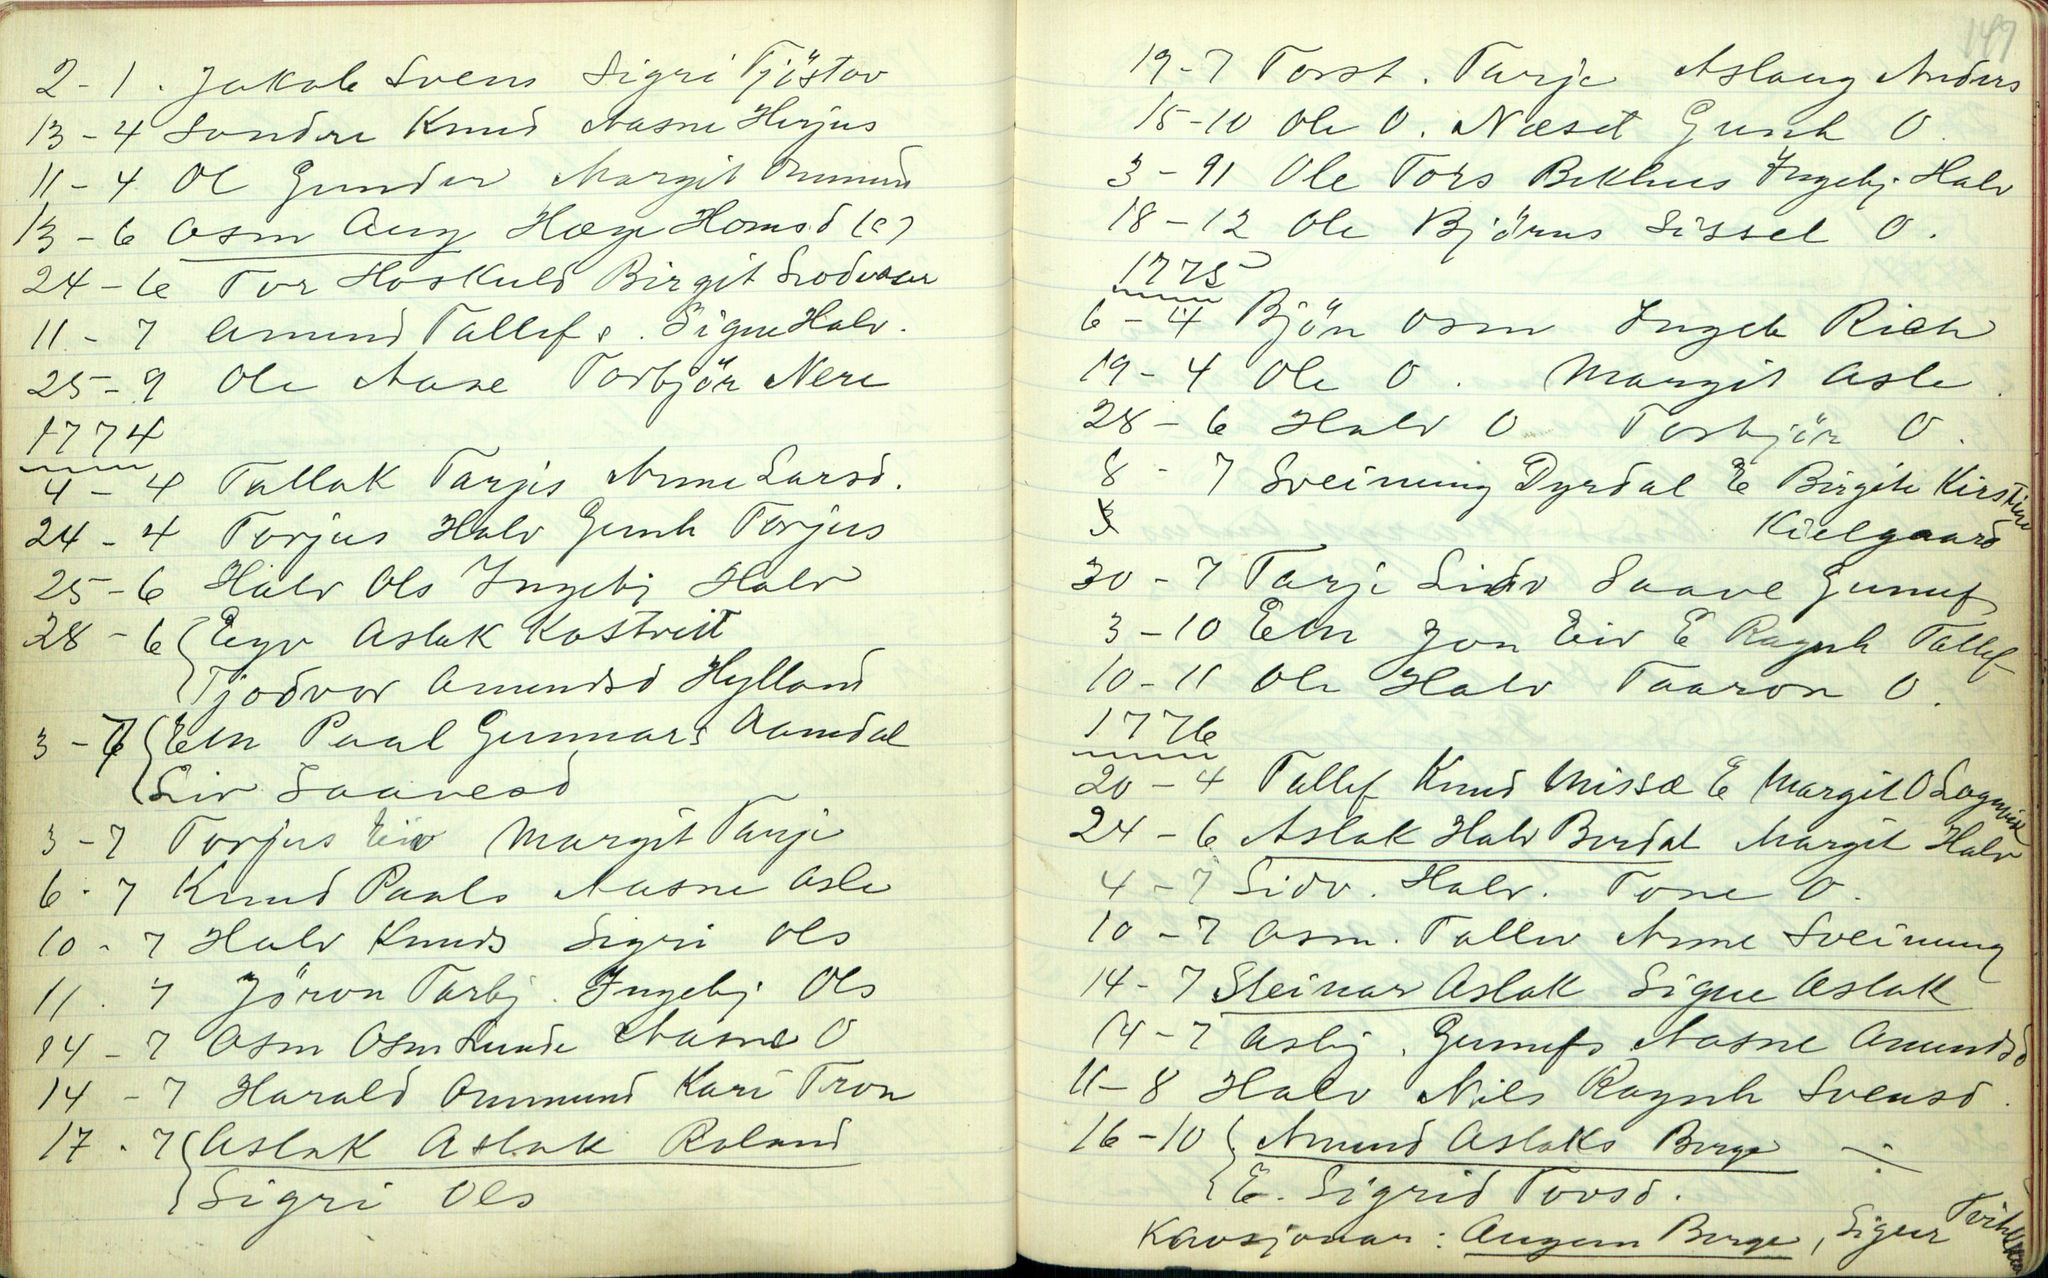 2 - 1 . Jakob Svens Sigri Tjöstov
13 - 4 Sondre Knud Aasne Herjus
11 - 4 Ol Gunder Margit Ommund
13 - 6 Osm Aug Hæge Homsd (?)
24 - 6 Tor Hoskuld Birgit
11 - 7 Amund Tallef s. Signe Halv.
25 - 9 Ole Aase Torbjör Nere
1774
4 - 4 Tallak Tarjes Anne Larsd.
24 - 4 Torjus Halv Gunh Torjus
25 - 6 Halv Ols Ingebj Halv
28 - 6 Eyv Aslak Kostveit
Tjodvor Amundsd Hylland
3 - 7 Em Paal Gunnars Aamdal
Liv Saavesd
3 - 7 Torjus Eiv Margit Tarje
6 - 7 Knud Paals Aasne Asle
10 - 7 Halv Knuds Sigri Ols
11 . 7 Jöron Torbj. Ingebj Ols
14 - 7 Osm Osm Lunde Aasne O
14 - 7 Harald Ommund Kari Tron
17 - 7 Aslak Aslak Roland
Sigri Ols
149
19 - 7 Torst. Tarje Aslaug Anders
15 - 10 Ole O. Næset Gunh O.
3 - 91 Ole Tors Bekhus Ingebj. Halv
18 - 12 Ole Björns Sissel O.
1775
6 - 4 Bjön Osm Ingeb Rich
19 - 4 Ole O. Margit Asle
28 - 6 Halv O Torbjör O.
8 - 7 Sveinung Dyrdal E Birgite Kirstine
3 Kielgaard
30 - 7 Tarje Sidv Saave Gunuf
3 - 10 Em Jon Eiv E Ragnh Tallef
10 - 11 Ole Halv Taaron O.
1776
20 - 4 Tallef Knud Missæ E Margit O Lognvik
24 - 6 Aslak Halv Berdal Margit Halv
4 - 7 Sidv. Halv. Tone O.
10 - 7 Osm. Tallev Anne Sveinung
14 - 7 Steinar Aslak Signe Aslak
14 - 7 Asbj. Gunufs Aasne Amundsd
11 - 8 Halv Nils Ragnh Svensd.
16 - 10 Amund Aslaks Berge
E. Sigrid Tovsd.
Kavsjonar: Augun Berge, Sigur